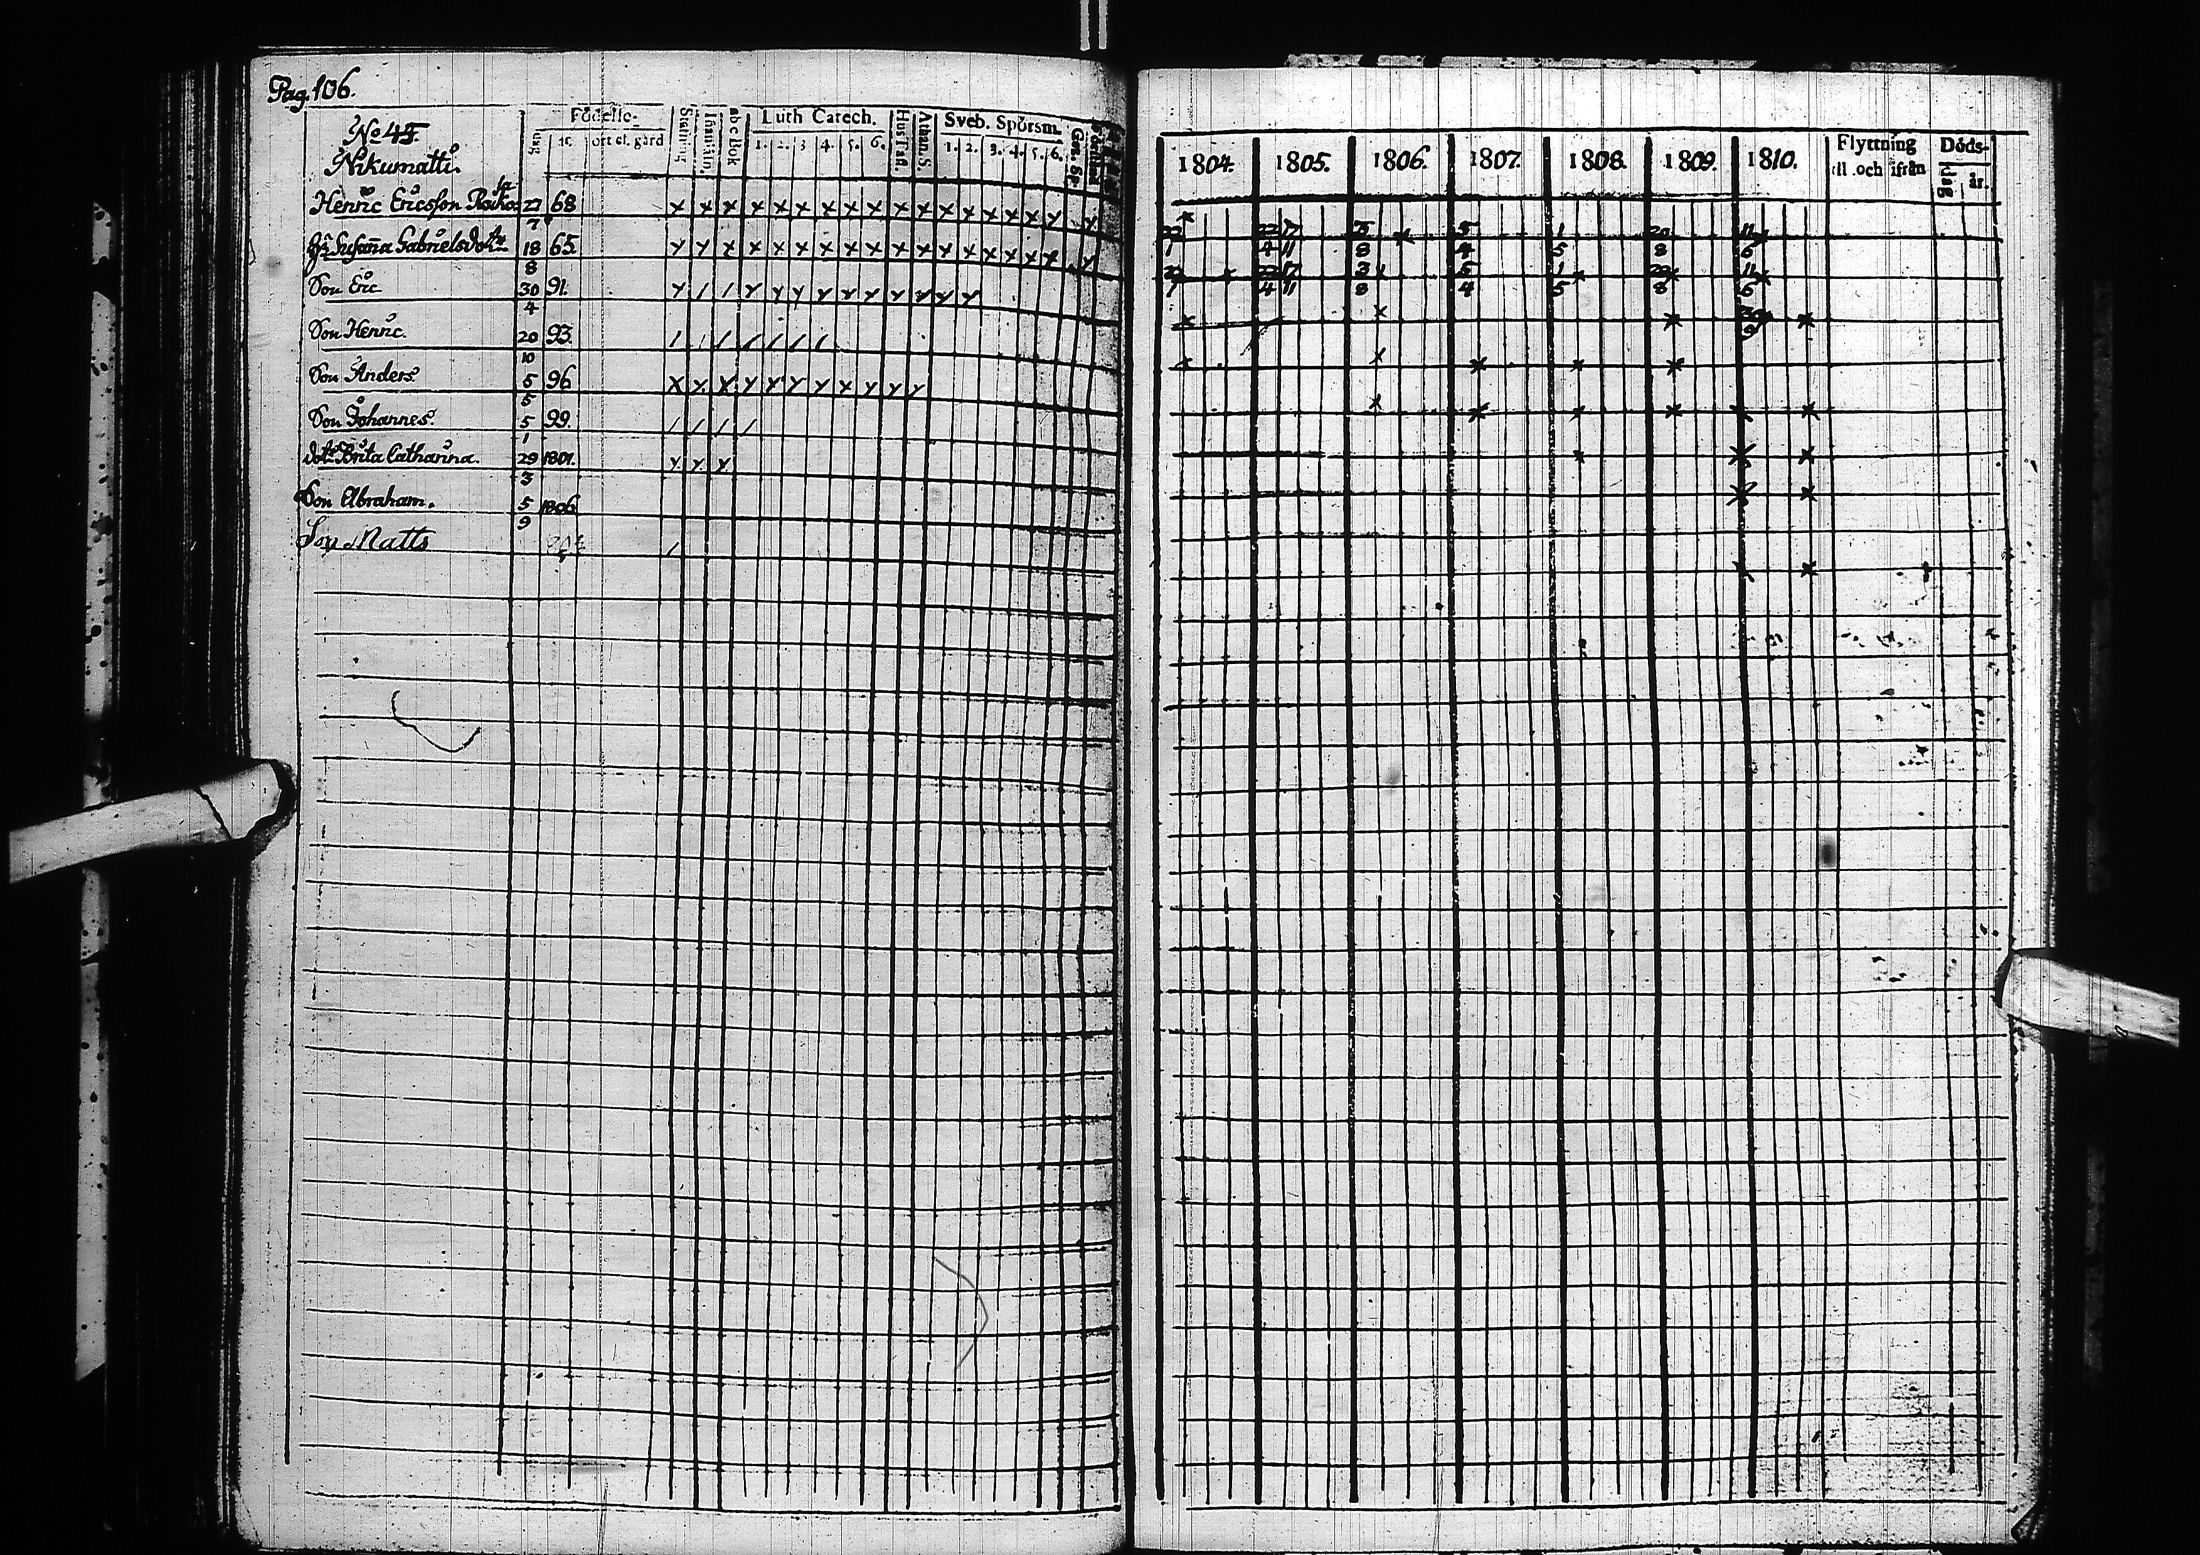 Pag. 106.
No 45.
Nikumatti
Födelse-
dag år ort el. gård
Stafning
Innantäln.
abc Bok
Luth Catech.
1. 2. 3 4. 5. 6.
Hus Tafl.
Athan. S.
Sveb. Spörsm.
1. 2. 3. 4. 5. 6.
Henric Ericsson 27/7 68
Susanna Gabrielsdotr 18/8 65.
Son Eric 30/4 91.
Son Henric. 20/10 93.
Son Anders. 5/5 96
Son Johannes. 5/1 99.
dotr Brita Catharina. 29/3 1801.
Son Abraham. 5/9 1806
Son Matts
1804. 1805. 1806. 1807. 1808. 1809. 1810.
Flyttning
till och ifrån
Döds-
dag år.
22/1 22/4 17/11 5/8 5/4 1/5 20/8 11/6
22/4 17/11 3/8 5/4 1/5 20/8 11/6